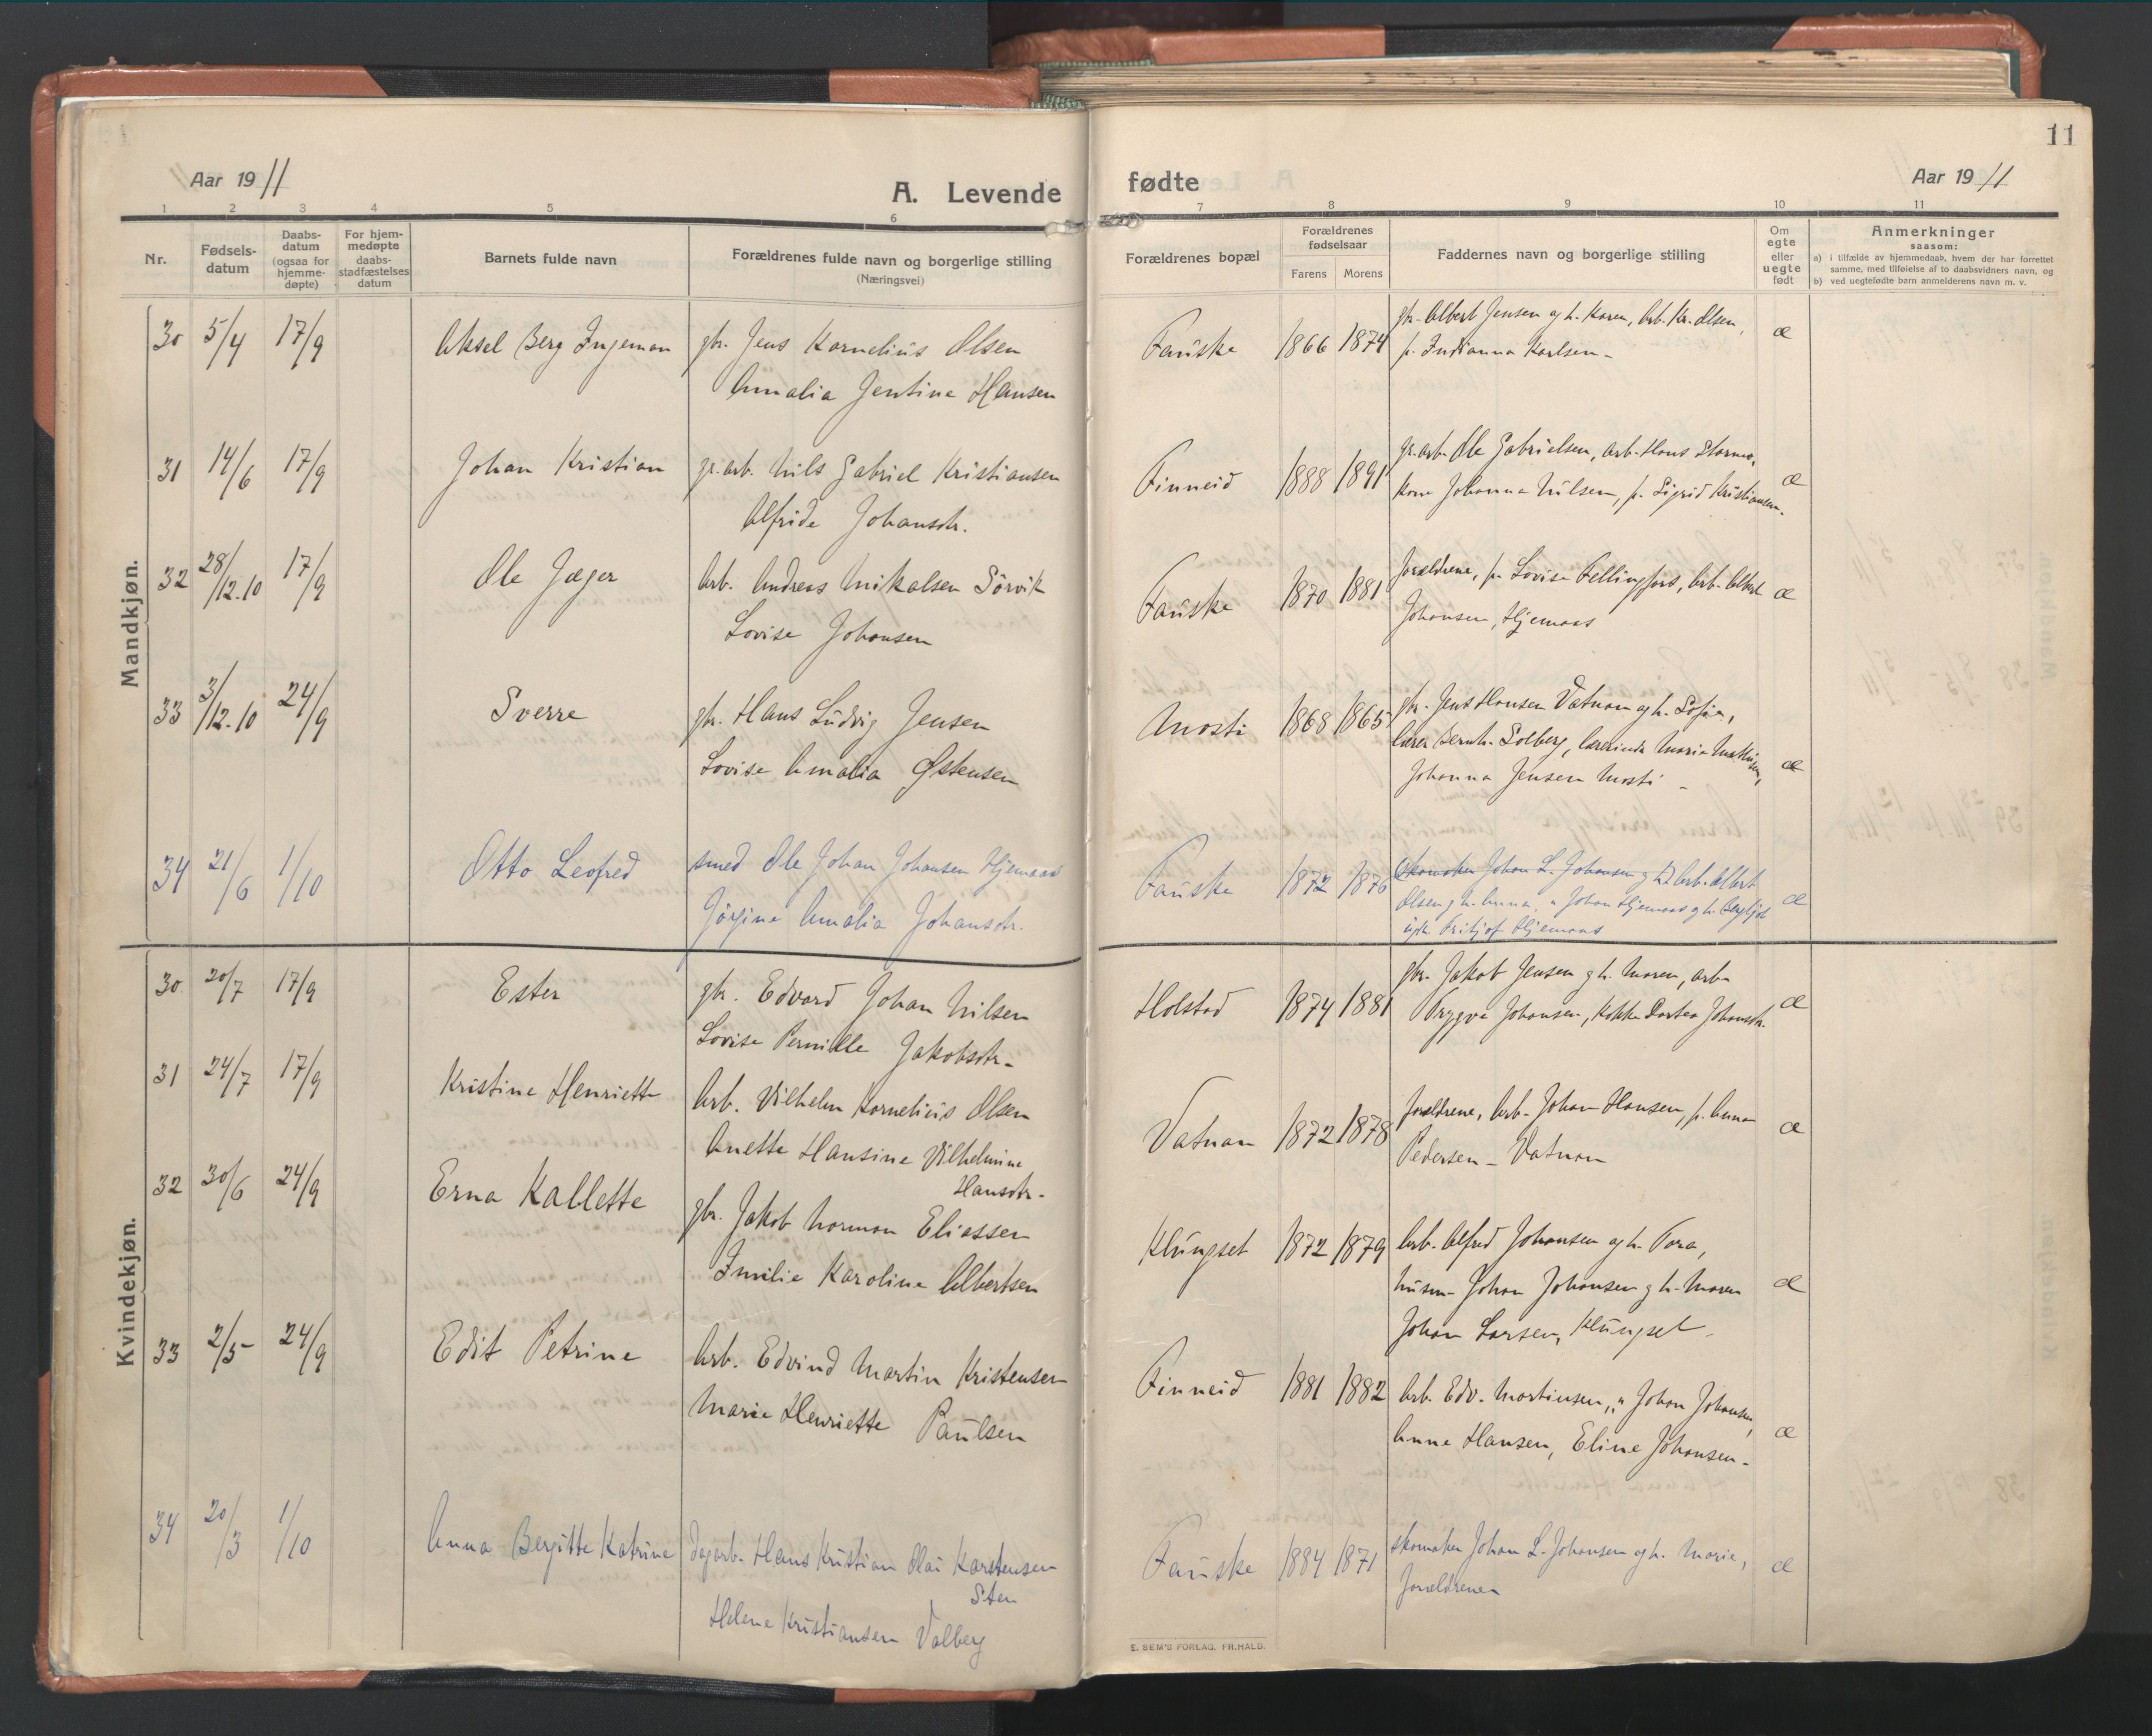 11
Aar 1911
A. Levende
fødte
Aar 1911
1 2 3 4 5 6 7 8 9 10 11
Nr.
Fødsels-
datum
Daabs-
datum
(ogsaa for
hjemme-
døpte)
For hjem-
medøpte
daabs-
stadfæstelses
datum
Barnets fulde navn
Forældrenes fulde navn og borgerlige stilling
(Næringsvei)
Forældrenes bopæl
Forældrenes
fødselsaar
Farens Morens
Faddernes navn og borgerlige stilling
Om
egte
eller
uegte
født
Anmerkninger
saasom:
a) i tilfælde av hjemmedaab, hvem der har forrettet
samme, med tilføielse af to daabsvidners navn, og
b) ved uegtefødte barn anmelderens navn m. v.
Mandkjøn.
30 5/4 17/9 Aksel Berg Ingeman gbr. Jens Kornelius Olsen Fauske 1866 1874 gbr. Albert Jensen og h. Karen, Arb. Kr. Olsen, æ
Amalia Jentine Hansen p. Indianna Karlsen -
31 14/6 17/9 Johan Kristian gr.arb. Nils Gabriel Kristiansen Finneid 1888 1891 gr.arb. Ole Gabrielsen, arb. Hans Stormo, æ
Alfride Johansdtr. kone Johanna Nilsen, p. Sigrid Kristiansen.
32 28/12.10 17/9 Ole Jæger Arb. Andreas Mikalsen Sørvik Fauske 1870 1881 forældrene, p. Lovise Fellingfors, Arb. Albert æ
Lovise Johansen Johansen, Hjemaas
33 3/12.10 24/9 Sverre gbr. Hans Ludvig Jensen Mosti 1868 1865 gbr. Jens Hansen Vatnan og h. Sofie,
Lovise Amalia Østensen lærer Bernh. Solberg, lærerinde Marie Mathisen, æ
Johanna Jensen Mosti -
34 21/6 1/10 Otto Leofred smed Ole Johan Johansen Hjemaas Fauske 1872 1876 Skomaker Johan L. Johansen og h. Arb. Albert
Jørgine Amalia Johansdtr. Olsen og h. Anna, " Johan Hjemaas og h. Bergljot æ
ugk. Fritjof Hjemaas
Kvindekjøn.
30 20/7 17/9 Ester gbr. Edvard Johan Nilsen Holstad 1874 1881 gbr. Jakob Jensen og h. Maren, arb. æ
Lovise Pernille Jakobsdtr. Trygve Johansen, Kokke Dortea Johansdtr.
31 24/7 17/9 Kristine Henriette Arb. Vilhelm Kornelius Olsen Vatnan 1872 1878 forældrene, Arb. Johan Hansen, p. Anna æ
Anette Hansine Vilhelmine Pedersen - Vatnan
Hansdtr.
32 30/6 24/9 Erna Kallette gbr. Jakob Norman Eliassen Klungset 1872 1879 Arb. Alfred Johansen og h. Tora,
Emilie Karoline Albertsen husm. Johan Johansen og h. Maren æ
Johan Larsen, Klungset
33 2/5 24/9 Edit Petrine Arb. Edvind Martin Kristensen Finneid 1881 1882 Arb. Edv. Martinsen, " Johan Johansen, æ
Marie Henriette Paulsen Anne Hansen, Eline Johansen -
34 20/3 1/10 Anna Bergitte Katrine dagarb. Hans Kristian Olai Karstensen Fauske 1884 1871 skomaker Johan L. Johansen og h. Marie, æ
Sten forældrene
Helene Kristiansen Valberg
E. SEM'S FORLAG, FR.HALD.